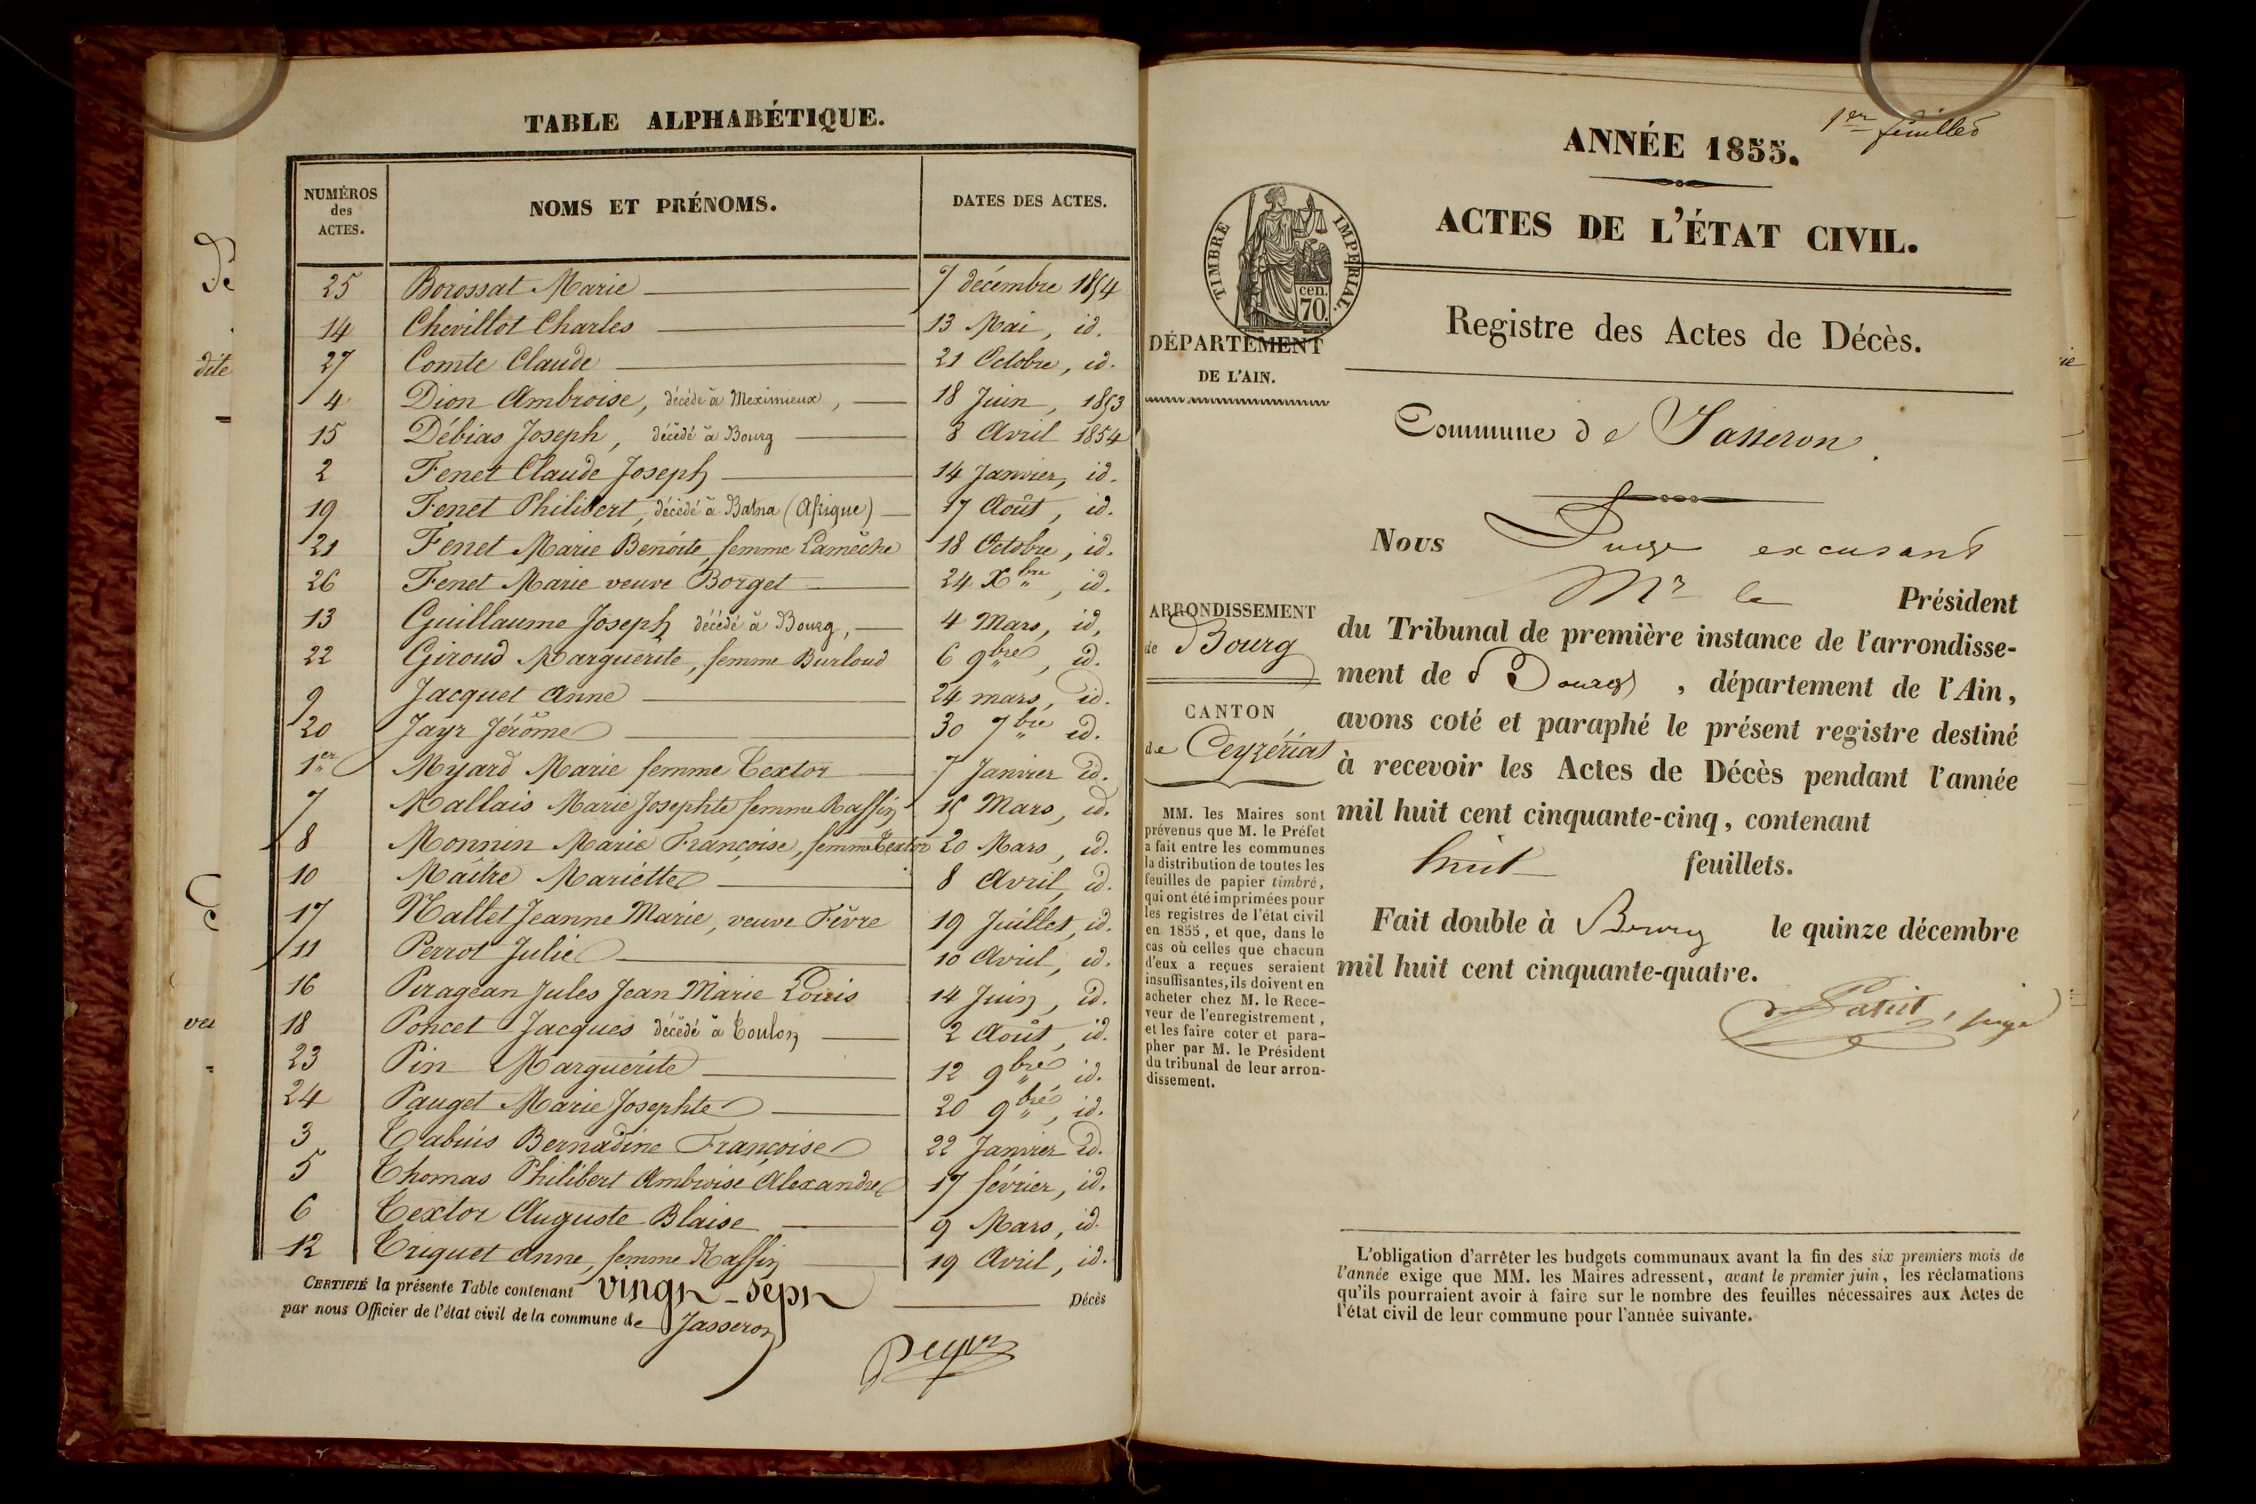 TABLE ALPHABÉTIQUE.
NUMÉROS des ACTES. NOMS ET PRÉNOMS. DATES DES ACTES.
25 Borossat Marie 7 décembre 1854
14 Chevillot Charles 13 Mai, id.
27 Comte Claude 21 Octobre, id.
4 Dion Ambroise, décédé à Meximieux, 18 Juin, 1853
15 Débias Joseph, décédé à Bourg 8 Avril 1854
2 Fenet Claude Joseph 14 Janvier, id.
19 Fenet Philibert, décédé à Batna (Afrique) 17 Août, id.
21 Fenet Marie Benoite, femme Lamèche 18 Octobre, id.
26 Fenet Marie veuve Borget 24 Xbre, id.
13 Guillaume Joseph décédé à Bourg, 4 Mars, id.
22 Giroud Marguerite, femme Burloud 6 9bre, id.
9 Jacquet Anne 24 mars, id.
20 Jayr Jérôme 30 7bre id.
1er Myard Marie femme Textor 7 Janvier id.
7 Mallais Marie Josephte femme Raffin 15 Mars, id.
8 Monnin Marie Françoise, femme Textor 20 Mars, id.
10 Maître Mariette 8 Avril, id.
17 Nallet Jeanne Marie, veuve Fèvre 19 Juillet, id.
11 Perrot Julie 10 Avril, id.
16 Piragean Jules Jean Marie Louis 14 Juin, id.
18 Poncet Jacques décédé à Toulon 2 Août, id.
23 Pin Marguerite 12 9bre, id.
24 Pauget Marie Josephte 20 9bre, id.
3 Tabuis Bernadine Françoise 22 Janvier id.
5 Thomas Philibert Ambroise Alexandre 17 février, id.
6 Textor Auguste Blaise 9 Mars, id.
12 Triquet Anne, femme Raffin 19 Avril, id.
CERTIFIÉ la présente Table contenant vingt-sept Décès
par nous Officier de l'état civil de la commune de Jasseron
1er feuillet
ANNÉE 1855.
ACTES DE L'ÉTAT CIVIL.
TIMBRE IMPÉRIAL.
cen.
70.
Registre des Actes de Décès.
DÉPARTEMENT
DE L'AIN.
Commune de Jasseron.
ARRONDISSEMENT
de Bourg
CANTON
de Ceyzériat
MM. les Maires sont
prévenus que M. le Préfet
a fait entre les communes
la distribution de toutes les
feuilles de papier timbré,
qui ont été imprimées pour
les registres de l'état civil
en 1855, et que, dans le
cas où celles que chacun
d'eux a reçues seraient
insuffisantes, ils doivent en
acheter chez M. le Rece-
veur de l'enregistrement,
et les faire coter et para-
pher par M. le Président
du tribunal de leur arron-
dissement.
Nous Juge excusant
Mr le Président
du Tribunal de première instance de l'arrondisse-
ment de Bourg, département de l'Ain,
avons coté et paraphé le présent registre destiné
à recevoir les Actes de Décès pendant l'année
mil huit cent cinquante-cinq, contenant
huit feuillets.
Fait double à Bourg le quinze décembre
mil huit cent cinquante-quatre.
juge
L'obligation d'arrêter les budgets communaux avant la fin des six premiers mois de
l'année exige que MM. les Maires adressent, avant le premier juin, les réclamations
qu'ils pourraient avoir à faire sur le nombre des feuilles nécessaires aux Actes de
l'état civil de leur commune pour l'année suivante.